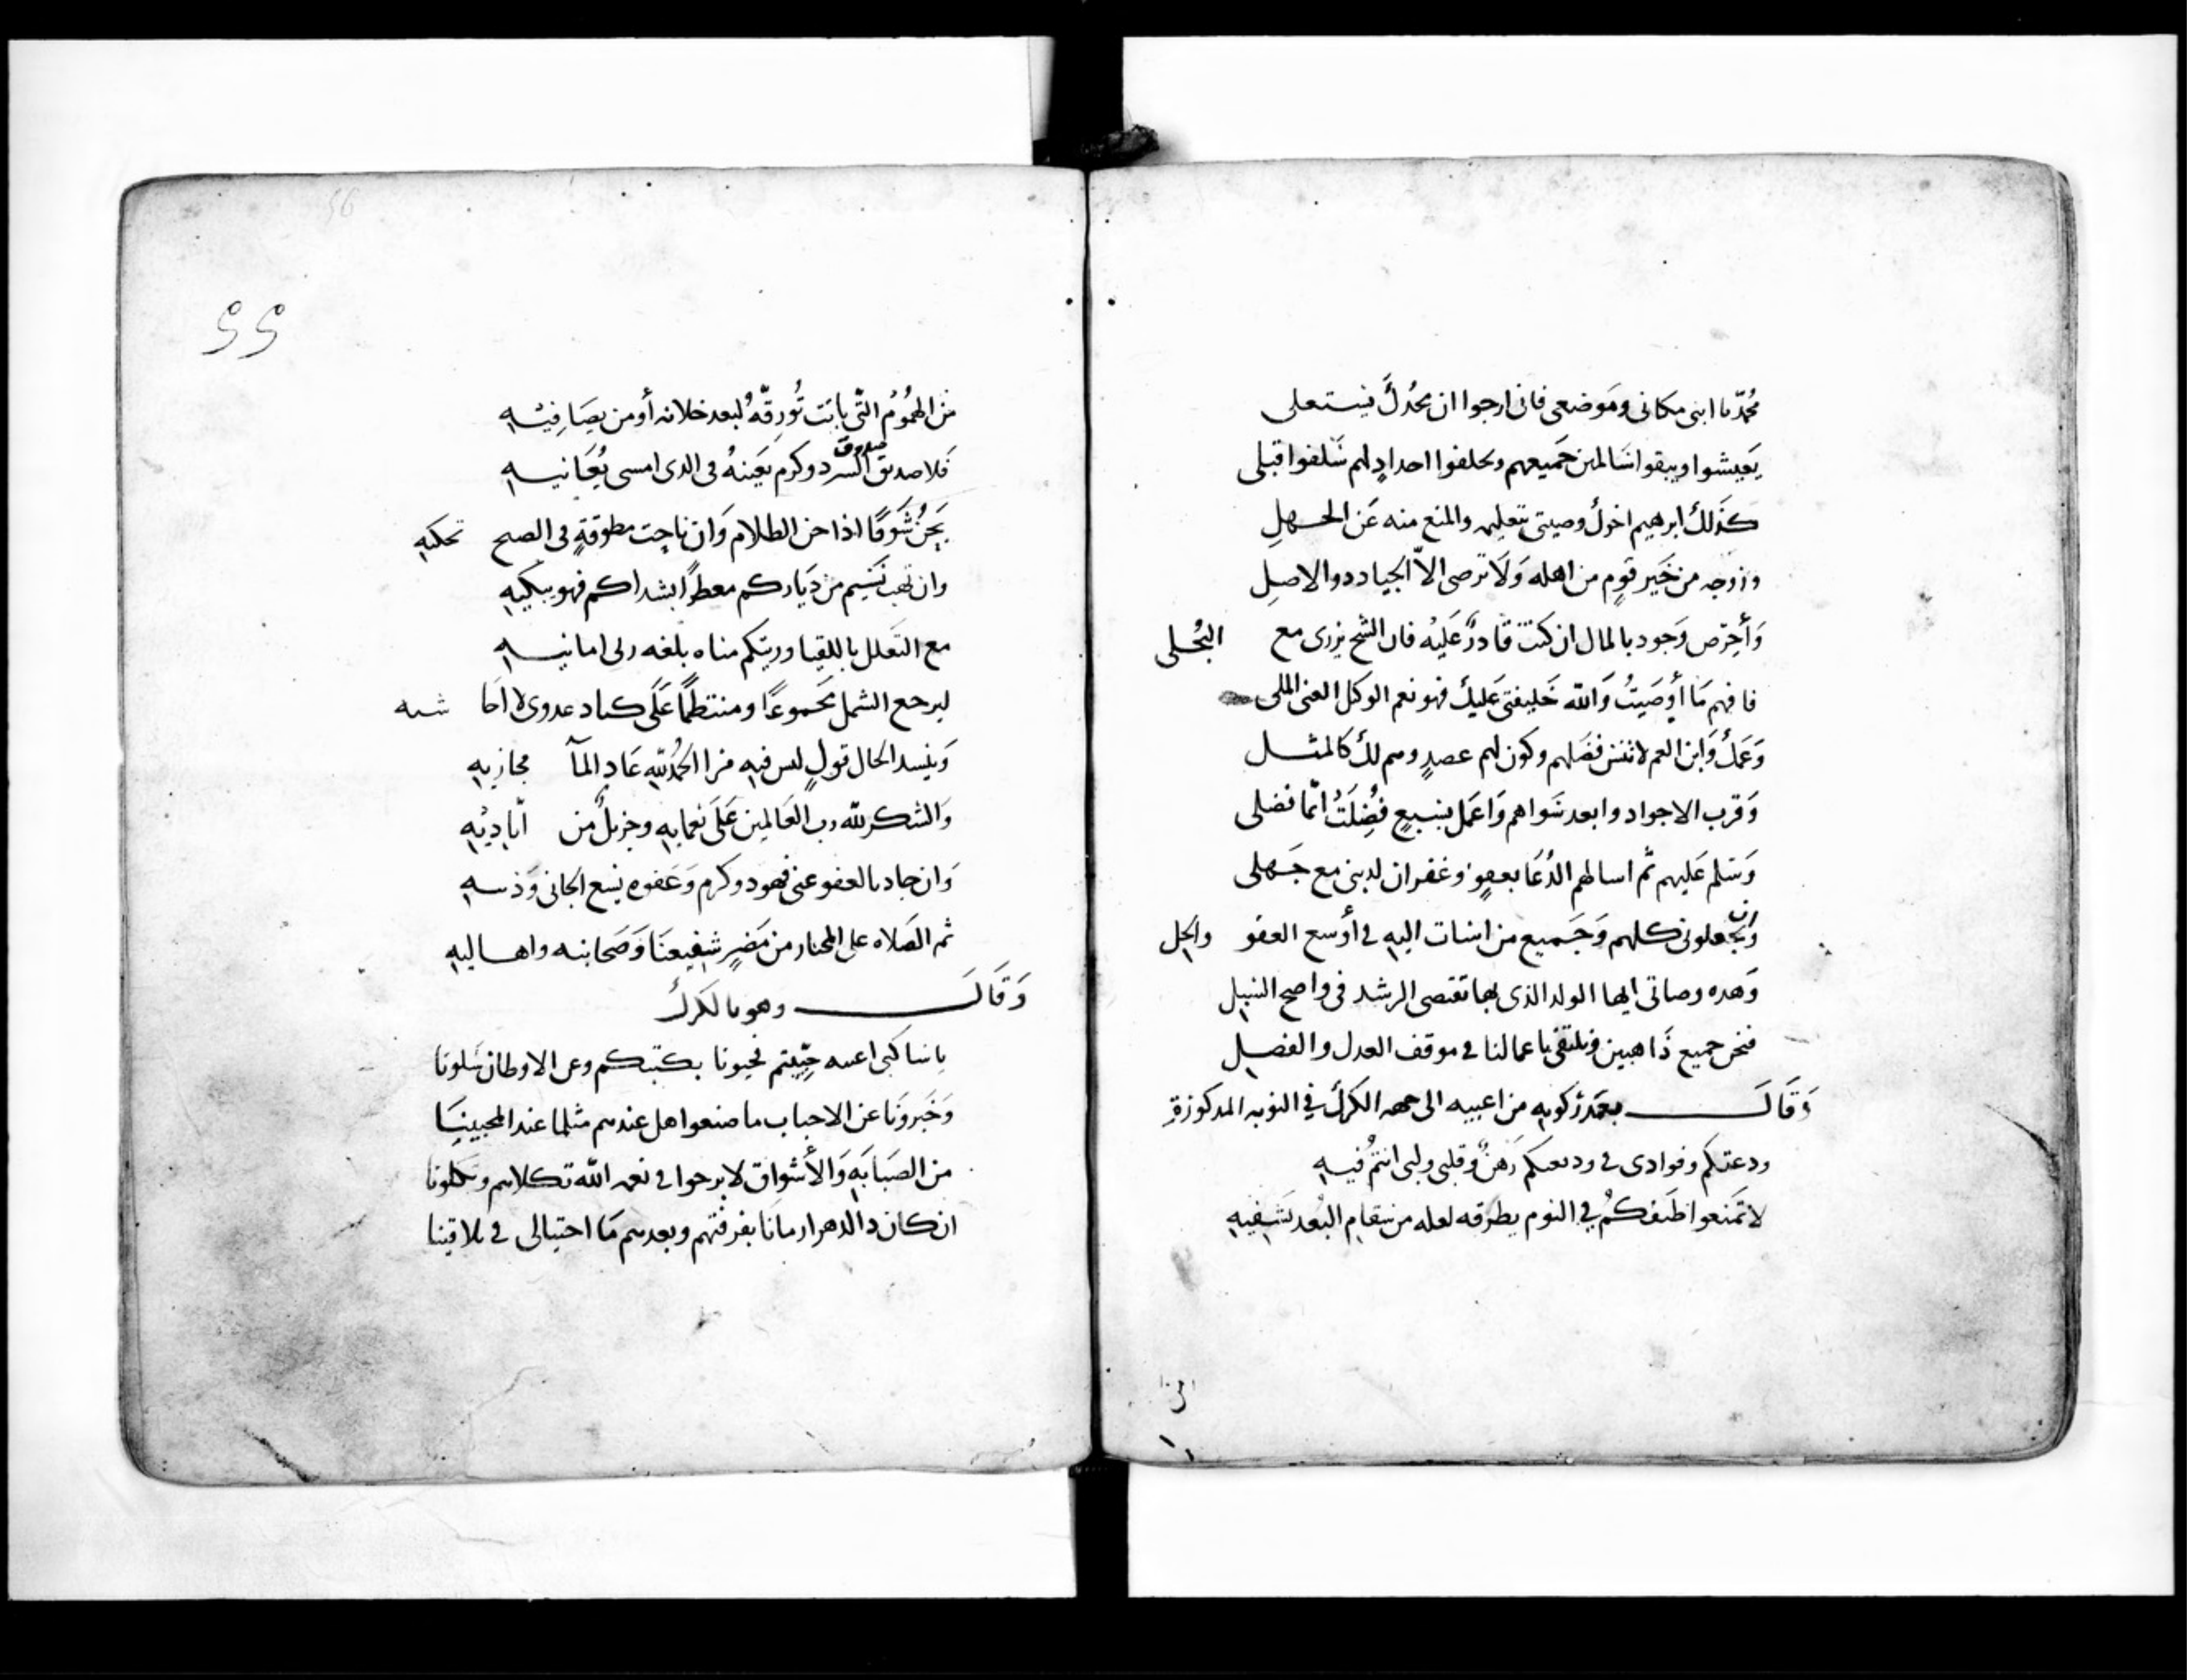 محمد يا ابنى مكانى وموضعى فان ارجوا ان مجدك يستعلى
يعيشوا ويبقوا سالمين جميعهم ويخلفوا احدادٍ لهم سلفوا قبلى
كذلك ابرهيم اخوك وصيتى بتعليمه والمنع منه عن الجهلِ
وزوجه من خير قومٍ من اهله ولا ترضى الاّ الجياد ذوو الاصلِ
وأحرص وجود بالمال ان كنت قادرٌ عليه فان الشح يزرى مع البخلى
فافهم ما أوصيتُ والله خليفتى عليك فهو نعم الوكل الغنى الملى
وعمك وابن العم لا تنس فضلهم وكون لهم عصدٍ وهم لك كالمثل
وقرب الاجواد وابعد سواهم واعمل بنسبعٍ فُضِلَتُ انّما فضلى
وسلم عليهم ثم اسالهم الدُعَا بعفوٍ وغفران لدينى مع جهلى
وان يجعلونى كلهم وجميع من اسات اليه فى أوسع العفو والحل
وهده وصاتى ايها الولد الذى بها تقتصى الرشد فى واضح السبل
فنحن جميع ذاهبين ونلتقى باعمالنا فى موقف العدل والفصل
وقال بعد ركوبه من اعبيه الى جهه الكرك فى النوبه المدكورة
ودعتكم وفوادى فى وديعتكم رهنٌ وقلبى ولبى انتمُ فيه
لا تمنعوا طيفكمُ فى النوم يطرقه لعله من سقام البُعد يشفيه
من
٥٥
من الهمُومُ التّى باتت تُورِقّهُ لبعد خلانه أو من يصَافِيْه
فلا صديق صدوق السرد وكرم يعينهُ فى الدى امسى يُعَانيه
يَحِنُ شوقًا اذا جن الظلام وان ناحت مطوقةٍ فى الصبح تحكيه
وان تهب نسيم من دياركم معطرًا بشداكم فهو يبكيه
مع التعلل باللقيا ورؤيتكم مناه بلغه ربى امانيه
ليرجع الشمل مجموعًا ومنتظمًا على كباد عدوى لا احاشيه
وينسد الحال قولٍ ليس فيه مرا الحمُدلله عاد الماَ مجازيه
والشكر لله رب العالمين على نعمايه وجزيلٌ من اَيادِيْهِ
وان جاد بالعفو عنى فهو دو كرم وعفوه يسع الجانى وذنبه
ثم الصلاه على المختار من مضرٍ شفيعنا وصحابته واهاليه
وقال وهو بالكرك
يا ساكنى اعبيه جيتم تحيونا بكتبكم وعن الاوطان سلونا
وخبرونا عن الاحباب ما صنعوا هل عندهم مثلما عند المحبينا
من الصبابه والأشواق لا برحوا فى نعمه الله تكلاهم وتكلونا
ان كان دا الدهر ارمانا بفرقتهم وبعدهم ما احتيالى فى تلاقينا